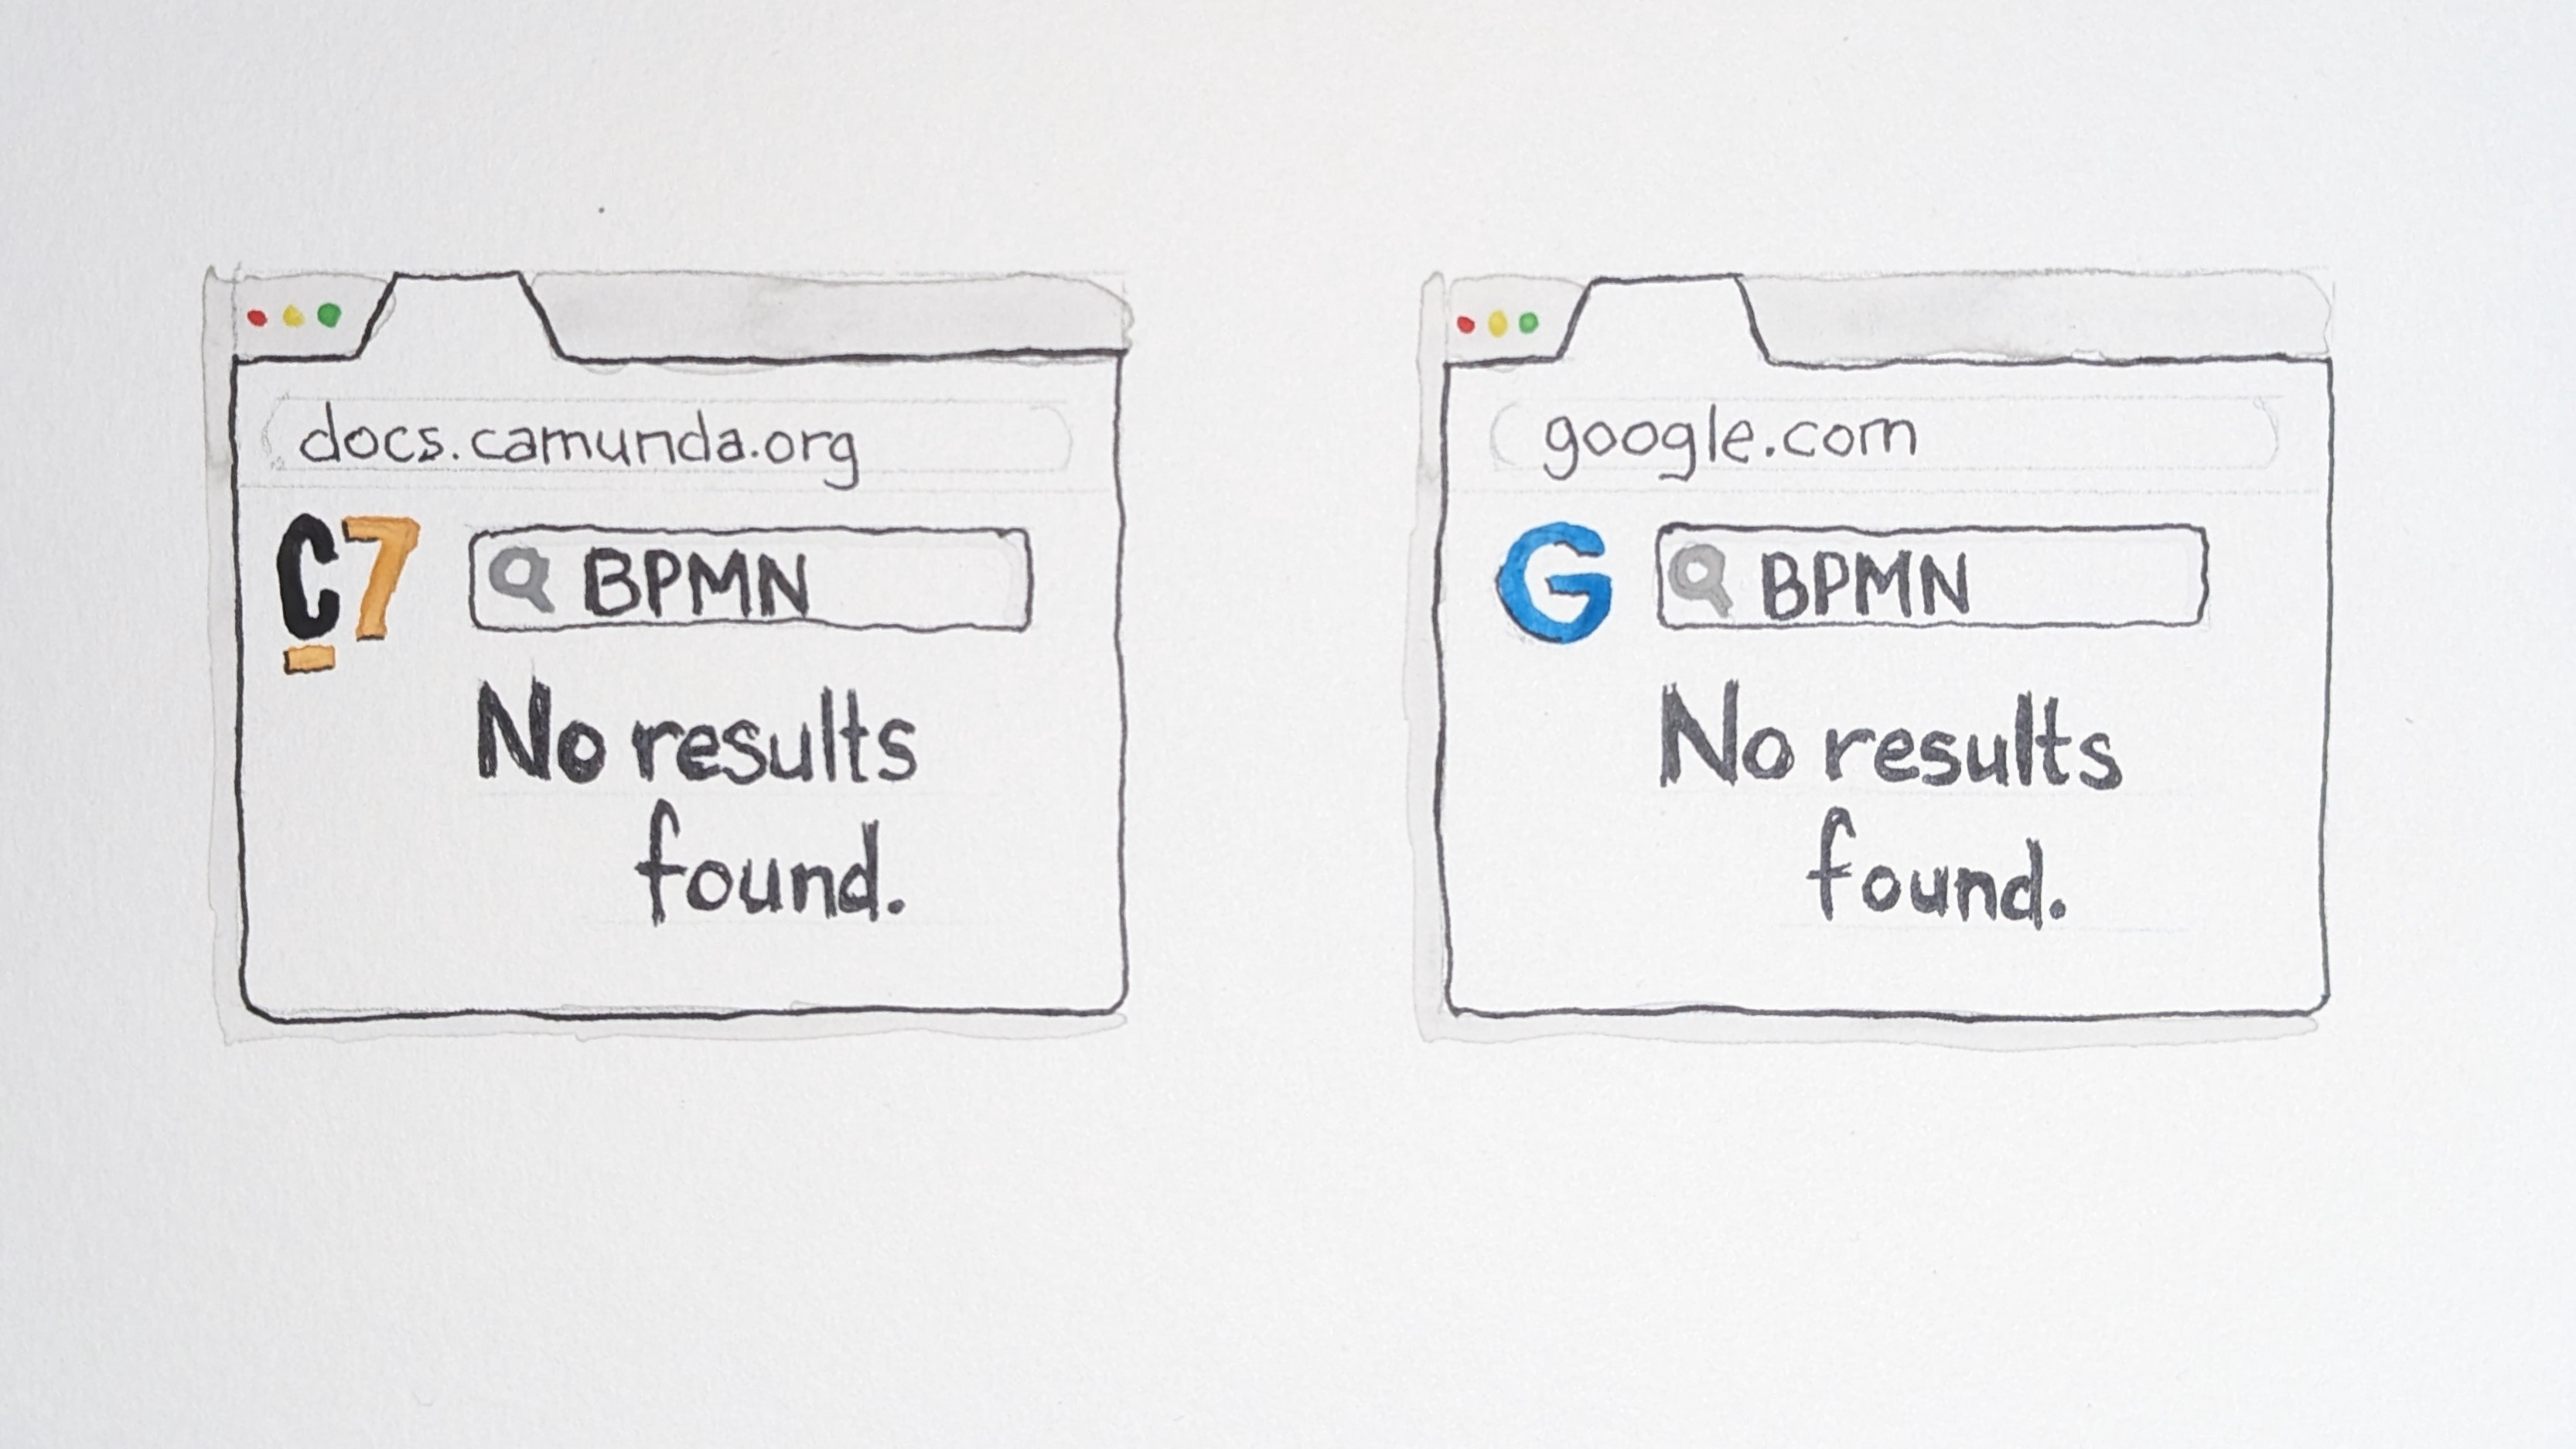 docs.camunda.org
C7
BPMN
No results
found.
google.com
G
BPMN
No results
found.